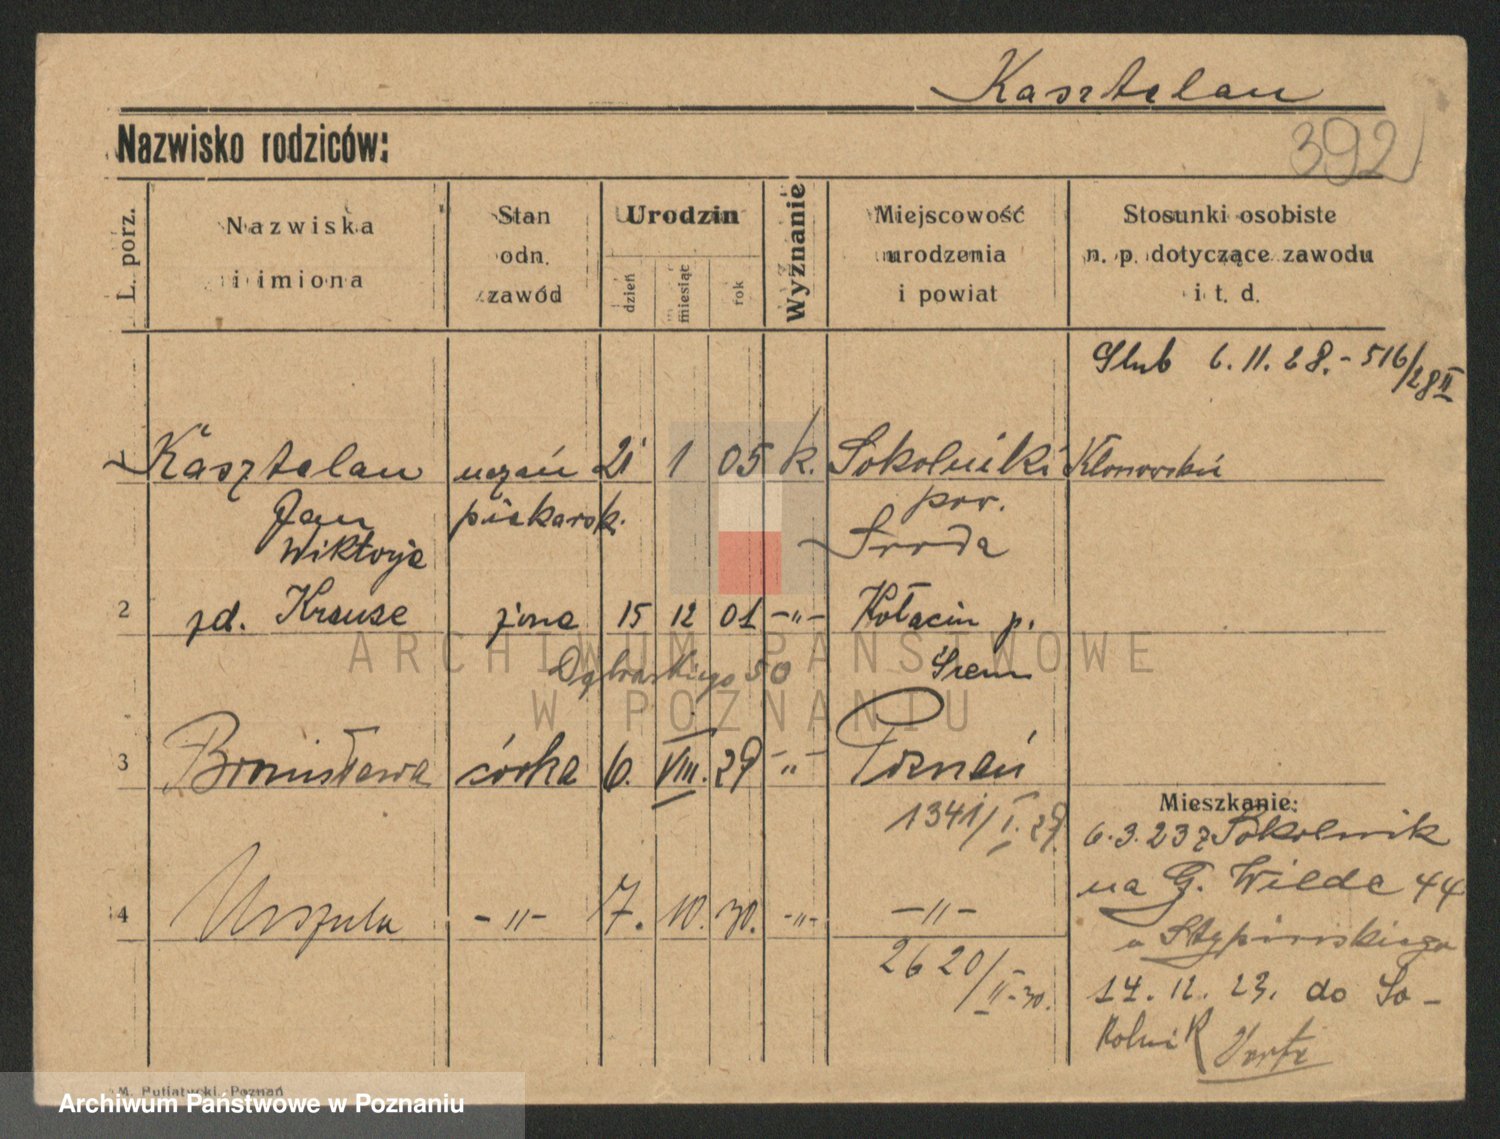 Kasztelan
Nazwisko rodziców:
392
L. porz.
Nazwiska
i imiona
Stan
odn.
zawód
Urodzin
dzień
miesiąc
rok
Wyznanie
Miejscowość
urodzenia
i powiat
Stosunki osobiste
n. p. dotyczące zawodu
i t. d.
Ślub 6. 11. 28. - 516/28 II
1 Kasztelan uczeń 21 1 05 k. Sokolniki
Jan piekarsk. pow.
Wiktorja Środa
2 zd. Krause żona 15 12 01 -"- Kołacin p.
50 Śrem
3 Bronisława córka 6. VIII. 29 -"- Poznań
1341/I. 29
Mieszkanie:
6. 3. 23 z Sokolnik
na G. Wilda 44
4 Urszula -"- 7. 10. 30. -"- -"-
u Stypińskiego
2620/II-30.
14. 12. 23. do So-
kolnik Verte
M. Putiatycki, Poznań
ARCHIWUM PAŃSTWOWE
W POZNANIU
Archiwum Państwowe w Poznaniu